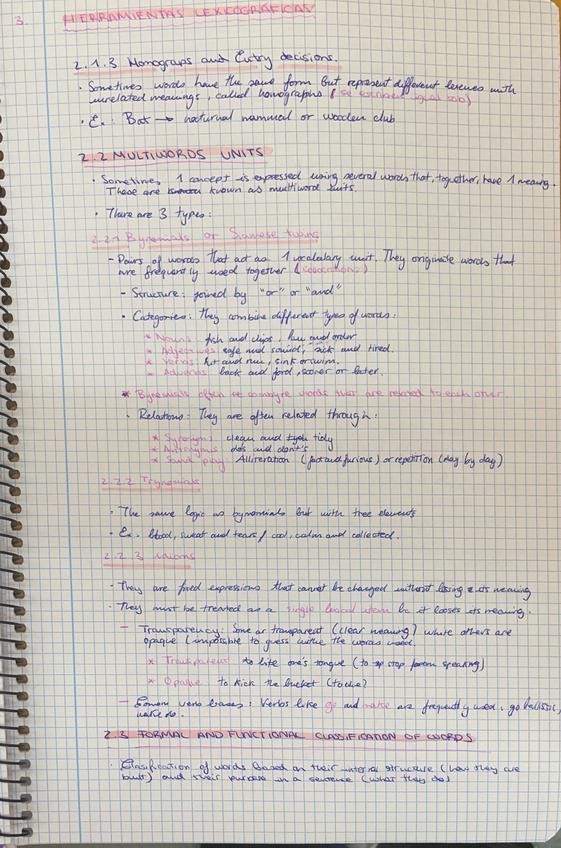 3. HERRAMIENTAS LEXICOGRÁFICAS
2.1.3 Homograps and Entry decisions.
· Sometimes words have the same form but represent different lexemes with
unrelated meanings, called homographs (se escriben igual sob)
· Ex: Bat → nocturnal mammel or wooden club
2.2 MULTIWORDS UNITS
· Sometimes 1 concept is expressed using several words that, together, have 1 meaning.
These are known as multiword units.
· There are 3 types:
2.2.1 Bynomials or Siamese twins
- Pairs of words that act as 1 vocabulary unit. They originate words that
are frequently used together (
- Structure: joined by "or" or "and"
· Categories: They combine different types of words:
* Nouns: fish and chips, law and order
* Adjectives: safe and sound, sick and tired
* Verbs: hit and run, sink or swim.
* Adverbs: back and ford, sooner or later.
* Bynomials often se combyne words that are related to each other.
· Relations: They are often related through:
* Synonyms: clean and tidy
* Antonyms: do's and dont's
* Sound play: Alliteration (fast and furious) or repetition (day by day)
2.2.2 Trynomials
· The same logic as bynomials but with tree elements
· Ex. blood, sweat and tears / cool, calm and collected.
2.2.3 Idioms
· They are fixed expressions that cannot be changed without losing its meaning
· They must be treated as a single lexical item bc it looses its meaning.
- Transparency: Some are transparent (clear meaning) while others are
opaque (impossible to guess withe the words used.
* Transparent to bite one's tongue (to stop from speaking)
* Opaque to kick the bucket (to die)
- Common verb bases: Verbs like go and make are frequently used: go ballistic,
make do.
2.3 FORMAL AND FUNCTIONAL CLASSIFICATION OF WORDS
· Classification of words based on their internal structure (how they are
built) and their purpose in a sentence (what they do)